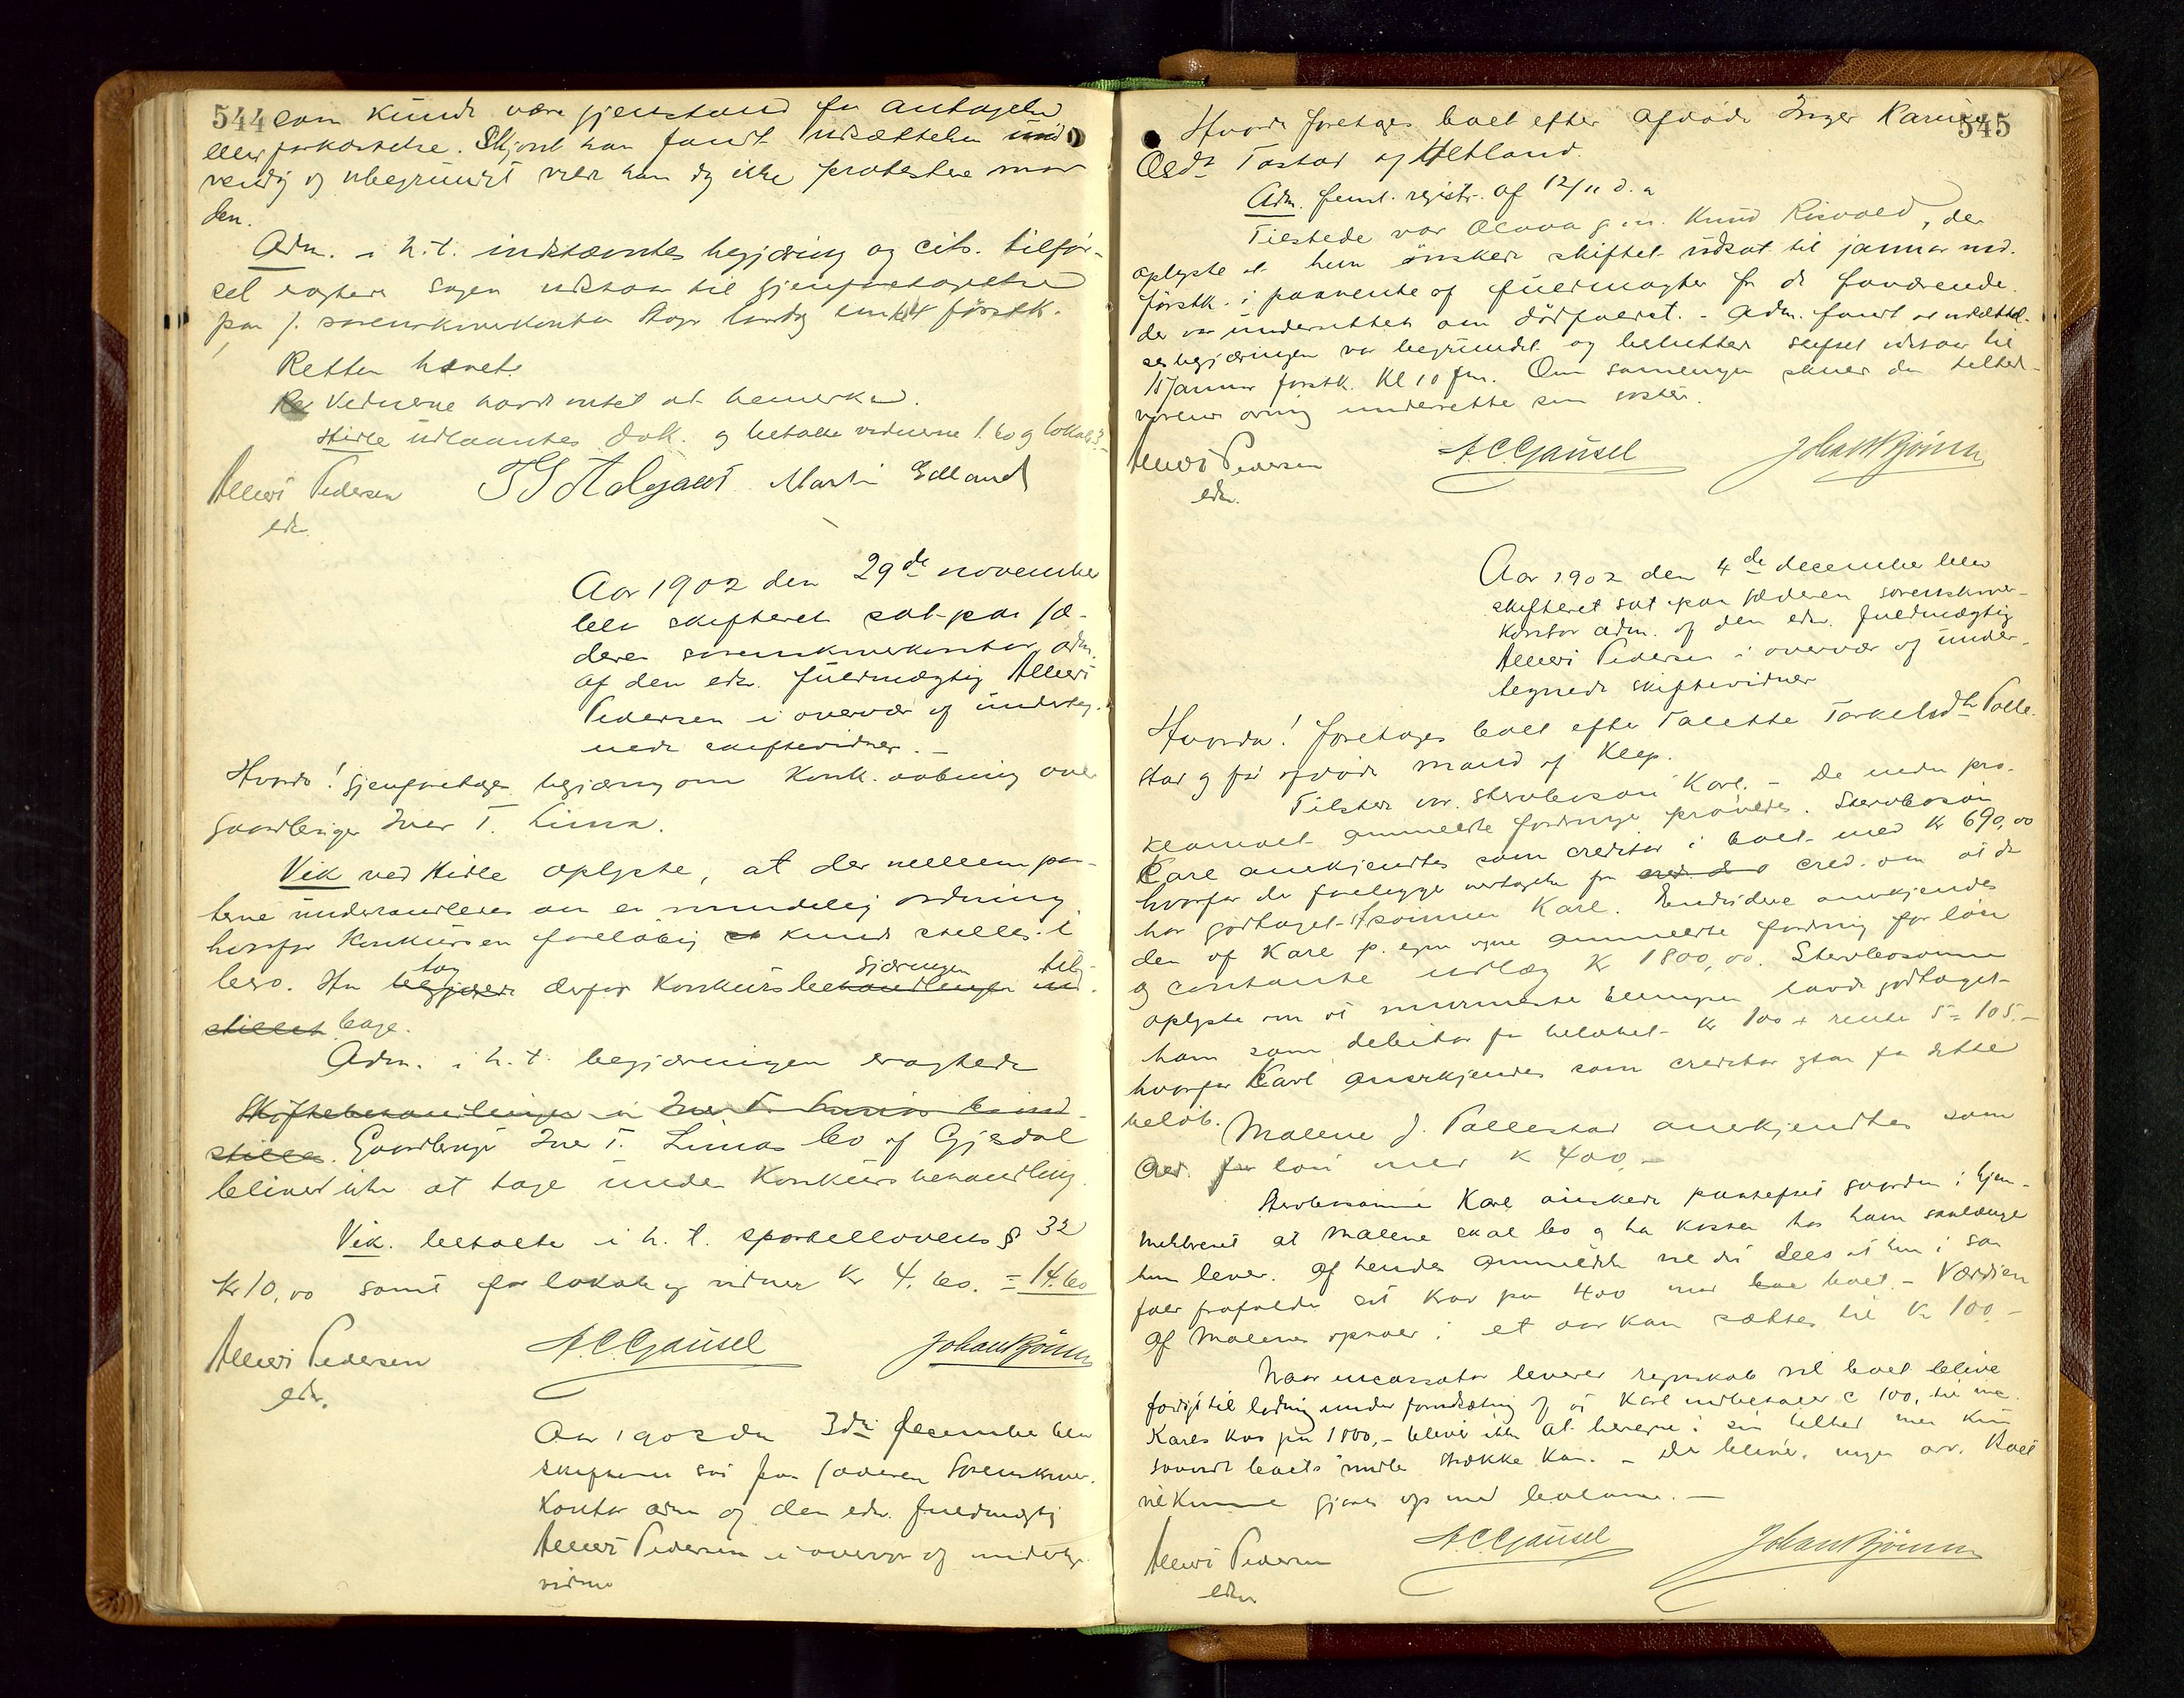 544 som kunde være gjenstand for antagelse
eller forkastelse. Skjønt han fandt udsættelsen
og ubegrundet vilde han dog ikke protestere mod
den.
Adm. i h.t. indstævntes begjæring og cit. tilfør-
sel eragtede sagen udstaar til gjenforetagelse
paa J. sorenskriverkontor lørdag førstk.
Retten hævet.
Vidnerne havde intet at bemerke.
Hidle udlaantes dok. og betalte vidnerne 1.60 og lokale
Alleri Pedersen
edsv.
Martin Edland
Aar 1902 den 29de november
blev skifteret sat paa Jæ-
deren sorenskriverkontor adm.
af den edsv. fuldmægtig Alleri
Pedersen i overvær af underteg-
nede skiftevidner. -
Hvorda! gjenforetages begjæring om konk. aabning over
gaardbruger Iver T. Lima.
Vik ved Hidle oplyste, at der mellem par-
terne underhandledes om en mindelig ordning
hvorfor konkursen foreløbig kunde stilles i
bero. Han tog gjæringen tilba-
begjærede derfor konkursbehandlingen ind-
stillet bage.
Adm. i h.t. begjæringen eragtede
Skiftebehandlingen i Iver T. Limas bo ind-
stilles. Gaardbruger Iver T. Limas bo af Gjesdal
bliver ikke at tage under konkursbehandling.
Vik. betalte i h.t. sportellovens § 32
Kr 10,00 samt for lokale og vidner Kr 4.60. = 14.60
Alleri Pedersen A.C. Gausel Johan Bjönnes
edsv.
Aar 1902 den 3die december blev
skifteret sat paa Jæderen Sorenskriver-
kontor adm af den edsv. fuldmægtig
Alleri Pedersen i overvær af undertegn.
vidner
545
Hvorda foretoges boet efter afdøde Inger Karine
Olsdr Tastad af Hetland.
Adm. freml. registr. af 12/11 d. a
Tilstede var Knud Risvold, der
oplyste at hun ønskede skiftet udsat til januar md.
førstk. i paavente af fuldmagter fra de fraværende
der var underrettet om dødsfaldet. - Adm. fandt at udsættel-
sesbegjæringen var begrundet og besluttede skiftet udstaar til
januar førstk. Kl 10 fm. Om samlingen skulde den tilstede-
værende arving underrette sin søster.
Alleri Pedersen A.C. Gausel Johan Bjönnes
edsv.
Aar 1902 den 4de december blev
skifteret sat paa Jæderen sorenskriver-
kontor adm. af den edsv. fuldmægtig
Alleri Pedersen i overvær af under-
tegnede skiftevidner
Hvorda! foretoges boet efter Talette Torkelsdtr Palle-
stad og før afdøde mand af Klep.
Tilstede var stervbosøn Karl. - De under pro-
klamaet anmeldte fordringer prøvedes. Stervbosøn
Karl anerkjendtes som creditor i boet med Kr 690,00
hvorfor der forelægges vedtagelse fra cred. om at de
har godtaget sønnen Karl. Endvidere anerkjendes
den af Karl p. egne vegne anmeldte fordring for løn
og contante udlæg Kr 1800,00. Stervbosønnen
oplyste om at havde godtaget
ham som debitor for beløbet Kr 100 + rente 5 = 105.-
hvorfor Karl anerkjendes som creditor for dette
beløb.
Malene J. Pallestad anerkjendtes som
cred. for løn med Kr 400,-
Stervbosønnen Karl ønskede paaheftet gaarden i skjøn-
at Malene skal bo og ha kosten hos ham saalænge
hun lever. Af hendes anmeldelse vil det sees at hun i saa
fald frafalder sit krav paa 400 mod boet. - Værdien
af Malenes ophold i et aar kan sættes til Kr 100.-
Naar incassator leverer regnskab vil boet blive
færdigt til lodning under forudsætning af at Karl indbetaler c 100,
Karls krav paa 1800,- bliver ikke at levere i sin helhed men kun
saavidt boets midler strække kan. - Der bliver ingen arv. Boet
vil kunne gjøres op med
Alleri Pedersen A.C. Gausel Johan Bjönnes
edsv